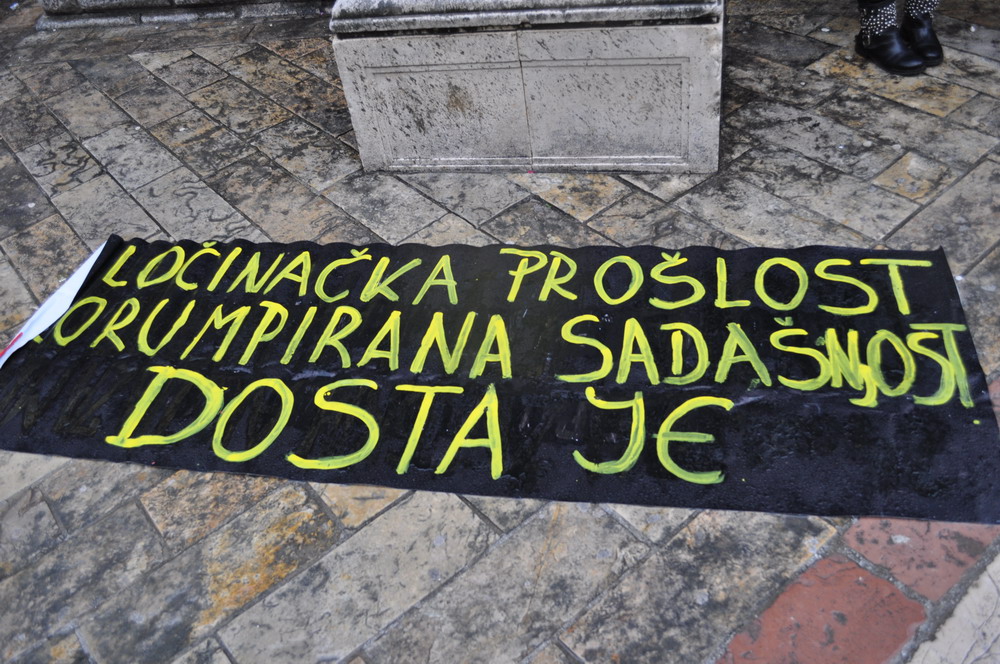 ZLOČINAČKA PROŠLOST
KORUMPIRANA SADAŠNJOST
DOSTA JE